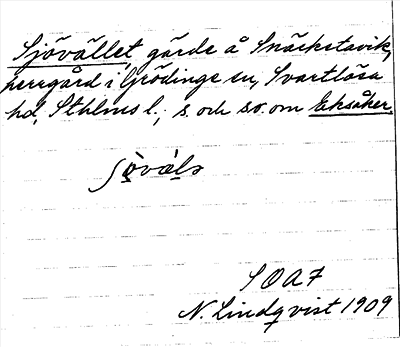 Sjövället, gärde å Snäckstavik,
herrgård i Grödinge sn, Svartlösa
hd, Sthlms l.; s. och sv. om Eksåker.
SOAF
N. Lindqvist 1909